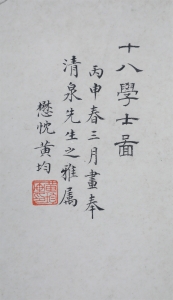 十八學士啚
丙申春三月畫奉
清泉先生之雅属
懋忱黄均